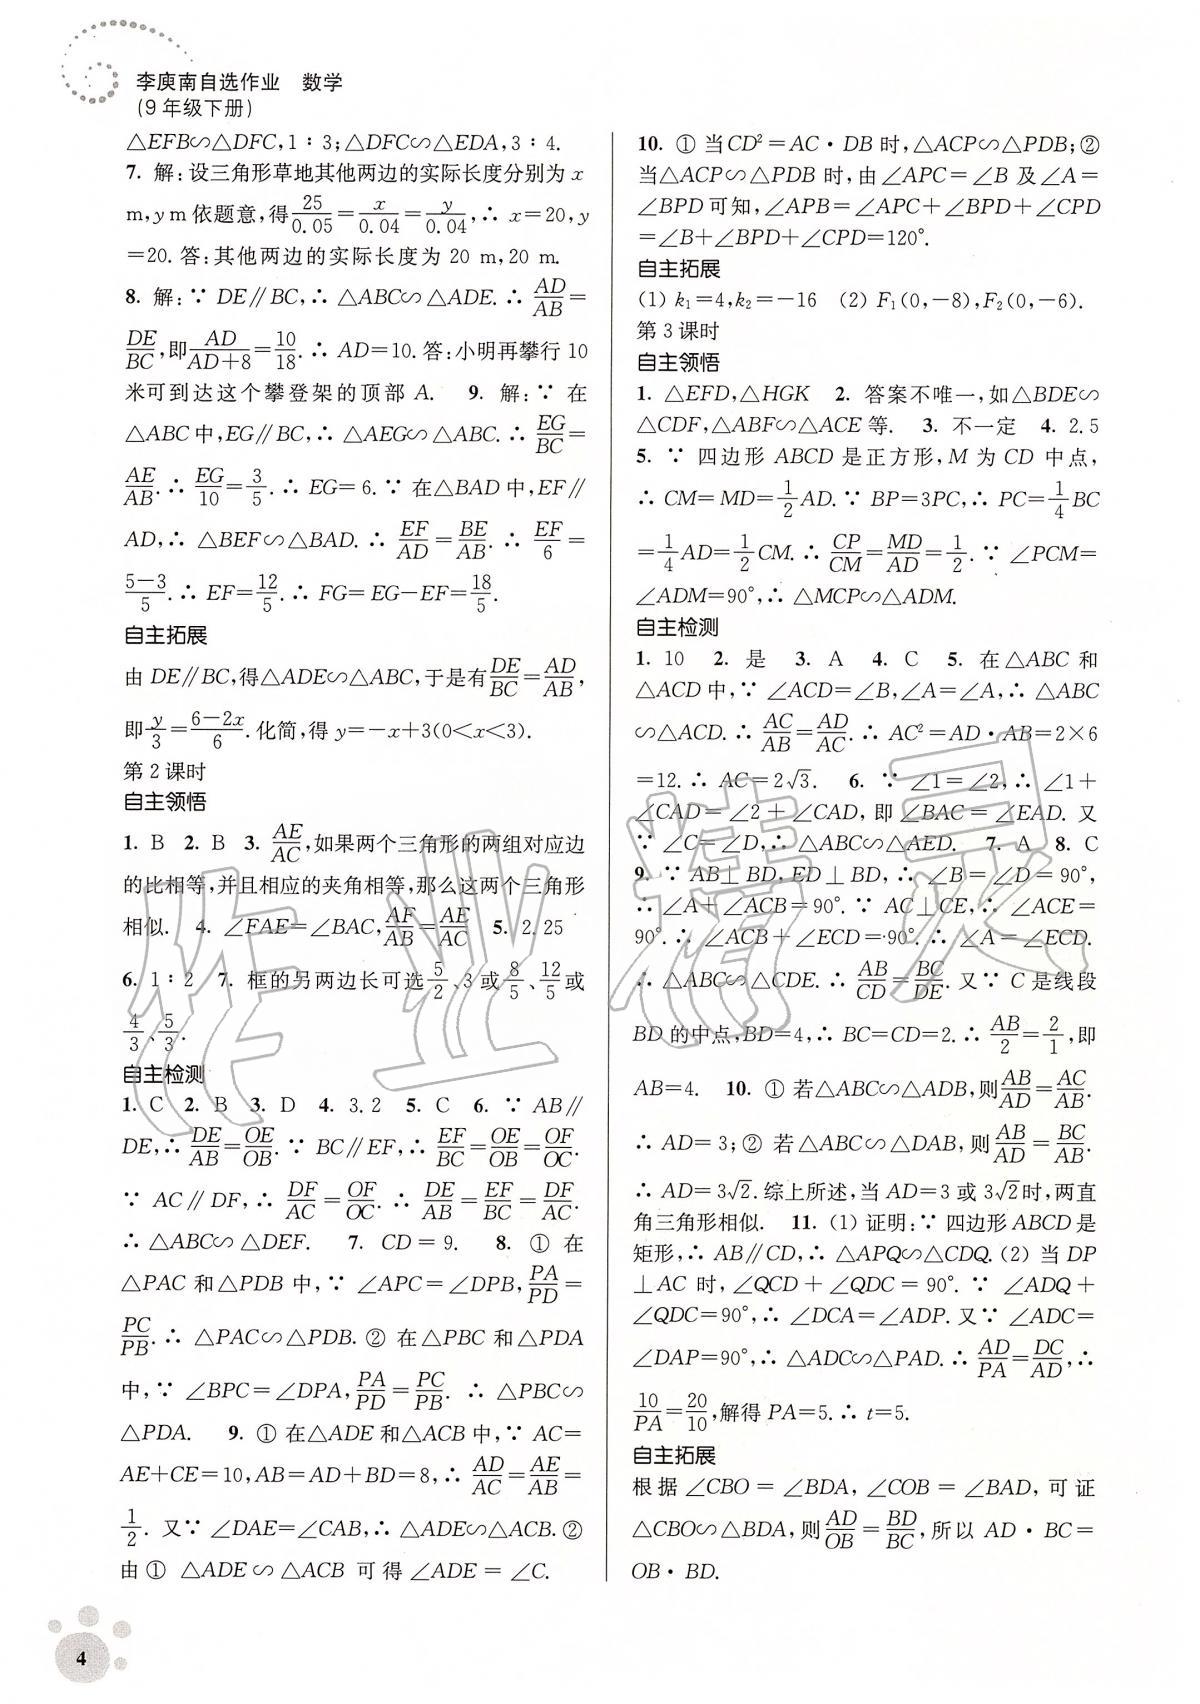 李庾南自选作业 数学
(9年级下册)
△EFB∽△DFC,1∶3;△DFC∽△EDA,3∶4.
7. 解:设三角形草地其他两边的实际长度分别为 x
m,y m 依题意,得25/0.05=x/0.04=y/0.04,∴ x=20,y
=20. 答:其他两边的实际长度为 20 m,20 m.
8. 解:∵ DE∥BC,∴ △ABC∽△ADE. ∴ AD/AB=
DE/BC,即AD/(AD+8)=10/18. ∴ AD=10. 答:小明再攀行 10
米可到达这个攀登架的顶部 A. 9. 解:∵ 在
△ABC 中,EG∥BC,∴ △AEG∽△ABC. ∴ EG/BC=
AE/AB. ∴ EG/10=3/5. ∴ EG=6. ∵ 在△BAD 中,EF∥
AD,∴ △BEF∽△BAD. ∴ EF/AD=BE/AB. ∴ EF/6=
(5-3)/5. ∴ EF=12/5. ∴ FG=EG-EF=18/5.
自主拓展
由 DE∥BC,得△ADE∽△ABC,于是有DE/BC=AD/AB,
即y/3=(6-2x)/6. 化简,得 y=-x+3(0<x<3).
第 2 课时
自主领悟
1. B 2. B 3. AE/AC,如果两个三角形的两组对应边
的比相等,并且相应的夹角相等,那么这两个三角形
相似. 4. ∠FAE=∠BAC,AF/AB=AE/AC 5. 2.25
6. 1∶2 7. 框的另两边长可选5/2、3或8/5、12/5或
4/3、5/3.
自主检测
1. C 2. B 3. D 4. 3.2 5. C 6. ∵ AB∥
DE,∴ DE/AB=OE/OB. ∵ BC∥EF,∴ EF/BC=OE/OB=OF/OC.
∵ AC∥DF,∴ DF/AC=OF/OC. ∴ DE/AB=EF/BC=DF/AC.
∴ △ABC∽△DEF. 7. CD=9. 8. ① 在
△PAC 和△PDB 中,∵ ∠APC=∠DPB,PA/PD=
PC/PB. ∴ △PAC∽△PDB. ② 在△PBC 和△PDA
中,∵ ∠BPC=∠DPA,PA/PD=PC/PB. ∴ △PBC∽
△PDA. 9. ① 在△ADE 和△ACB 中,∵ AC=
AE+CE=10,AB=AD+BD=8,∴ AD/AC=AE/AB=
1/2. 又∵ ∠DAE=∠CAB,∴ △ADE∽△ACB. ②
由 ① △ADE∽△ACB 可得∠ADE=∠C.
10. ① 当CD²=AC·DB 时,△ACP∽△PDB;②
当△ACP∽△PDB 时,由∠APC=∠B 及∠A=
∠BPD 可知,∠APB=∠APC+∠BPD+∠CPD
=∠B+∠BPD+∠CPD=120°.
自主拓展
(1) k₁=4,k₂=-16 (2) F₁(0,-8),F₂(0,-6).
第 3 课时
自主领悟
1. △EFD,△HGK 2. 答案不唯一,如△BDE∽
△CDF,△ABF∽△ACE 等. 3. 不一定 4. 2.5
5. ∵ 四边形 ABCD 是正方形,M 为 CD 中点,
∴ CM=MD=1/2AD. ∵ BP=3PC,∴ PC=1/4BC
=1/4AD=1/2CM. ∴ CP/CM=MD/AD=1/2. ∵ ∠PCM=
∠ADM=90°,∴ △MCP∽△ADM.
自主检测
1. 10 2. 是 3. A 4. C 5. 在△ABC 和
△ACD 中,∵ ∠ACD=∠B,∠A=∠A,∴ △ABC
∽△ACD. ∴ AC/AB=AD/AC. ∴ AC²=AD·AB=2×6
=12. ∴ AC=2√3. 6. ∵ ∠1=∠2,∴ ∠1+
∠CAD=∠2+∠CAD,即∠BAC=∠EAD. 又
∵ ∠C=∠D,∴ △ABC∽△AED. 7. A 8. C
9. ∵ AB⊥BD,ED⊥BD,∴ ∠B=∠D=90°,
∴ ∠A+∠ACB=90°. ∵ AC⊥CE,∴ ∠ACE=
90°. ∴ ∠ACB+∠ECD=90°. ∴ ∠A=∠ECD.
∴ △ABC∽△CDE. ∴ AB/CD=BC/DE. 又∵ C 是线段
BD 的中点,BD=4,∴ BC=CD=2. ∴ AB/2=2/1,即
AB=4. 10. ① 若△ABC∽△ADB,则AB/AD=AC/AB.
∴ AD=3;② 若△ABC∽△DAB,则AB/AD=BC/AB.
∴ AD=3√2. 综上所述,当 AD=3 或 3√2时,两直
角三角形相似. 11. (1) 证明:∵ 四边形 ABCD 是
矩形,∴ AB∥CD,∴ △APQ∽△CDQ. (2) 当 DP
⊥AC 时,∠QCD+∠QDC=90°. ∵ ∠ADQ+
∠QDC=90°,∴ ∠DCA=∠ADP. 又∵ ∠ADC=
∠DAP=90°,∴ △ADC∽△PAD. ∴ AD/PA=DC/AD,∴
10/PA=20/10,解得 PA=5. ∴ t=5.
自主拓展
根据∠CBO=∠BDA,∠COB=∠BAD,可证
△CBO∽△BDA,则AD/OB=BD/BC,所以 AD·BC=
OB·BD.
4
作业精灵